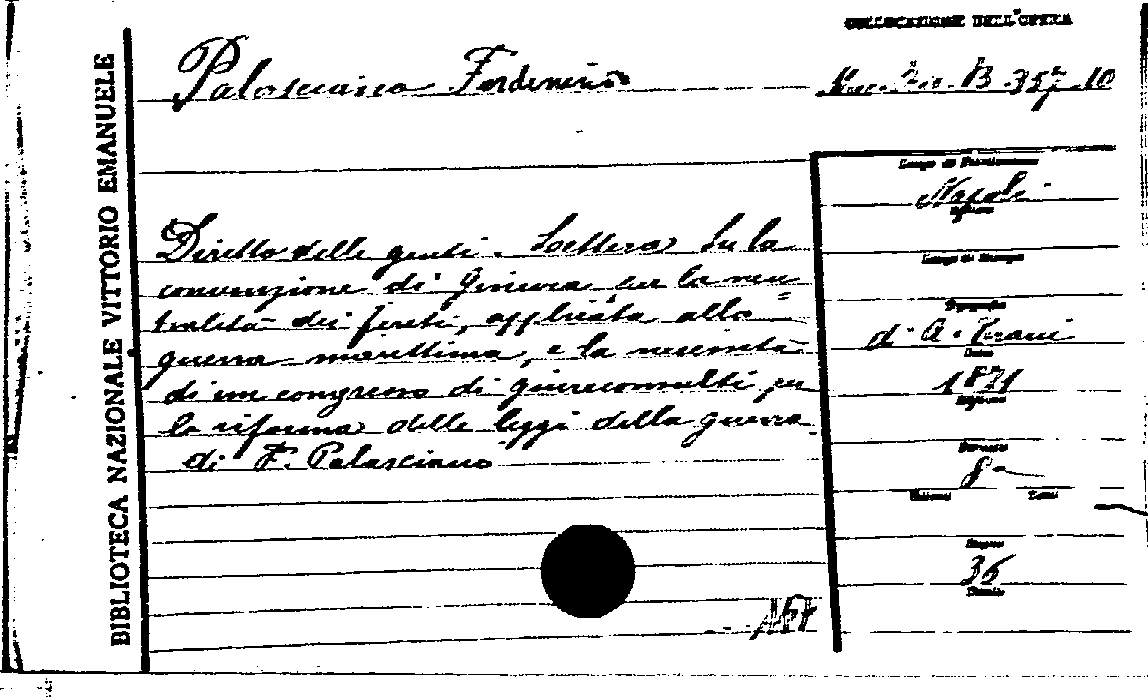 COLLOCAZIONE DELL'OPERA
Palasciano Ferdinando
B. 357 10
BIBLIOTECA NAZIONALE VITTORIO EMANUELE
Diritto delle genti. Lettera su la
convenzione di Ginevra per la neu=
tralità dei feriti, applicata alla
guerra marittima, e la necessità
di un congresso di giureconsulti per
la riforma delle leggi della guerra
di F. Palasciano
Luogo di Pubblicazione
Napoli
Luogo di Stampa
Tipografia
di A. Trani
Data
1871
Formato
8°
Volumi Tomi
Pagine
36